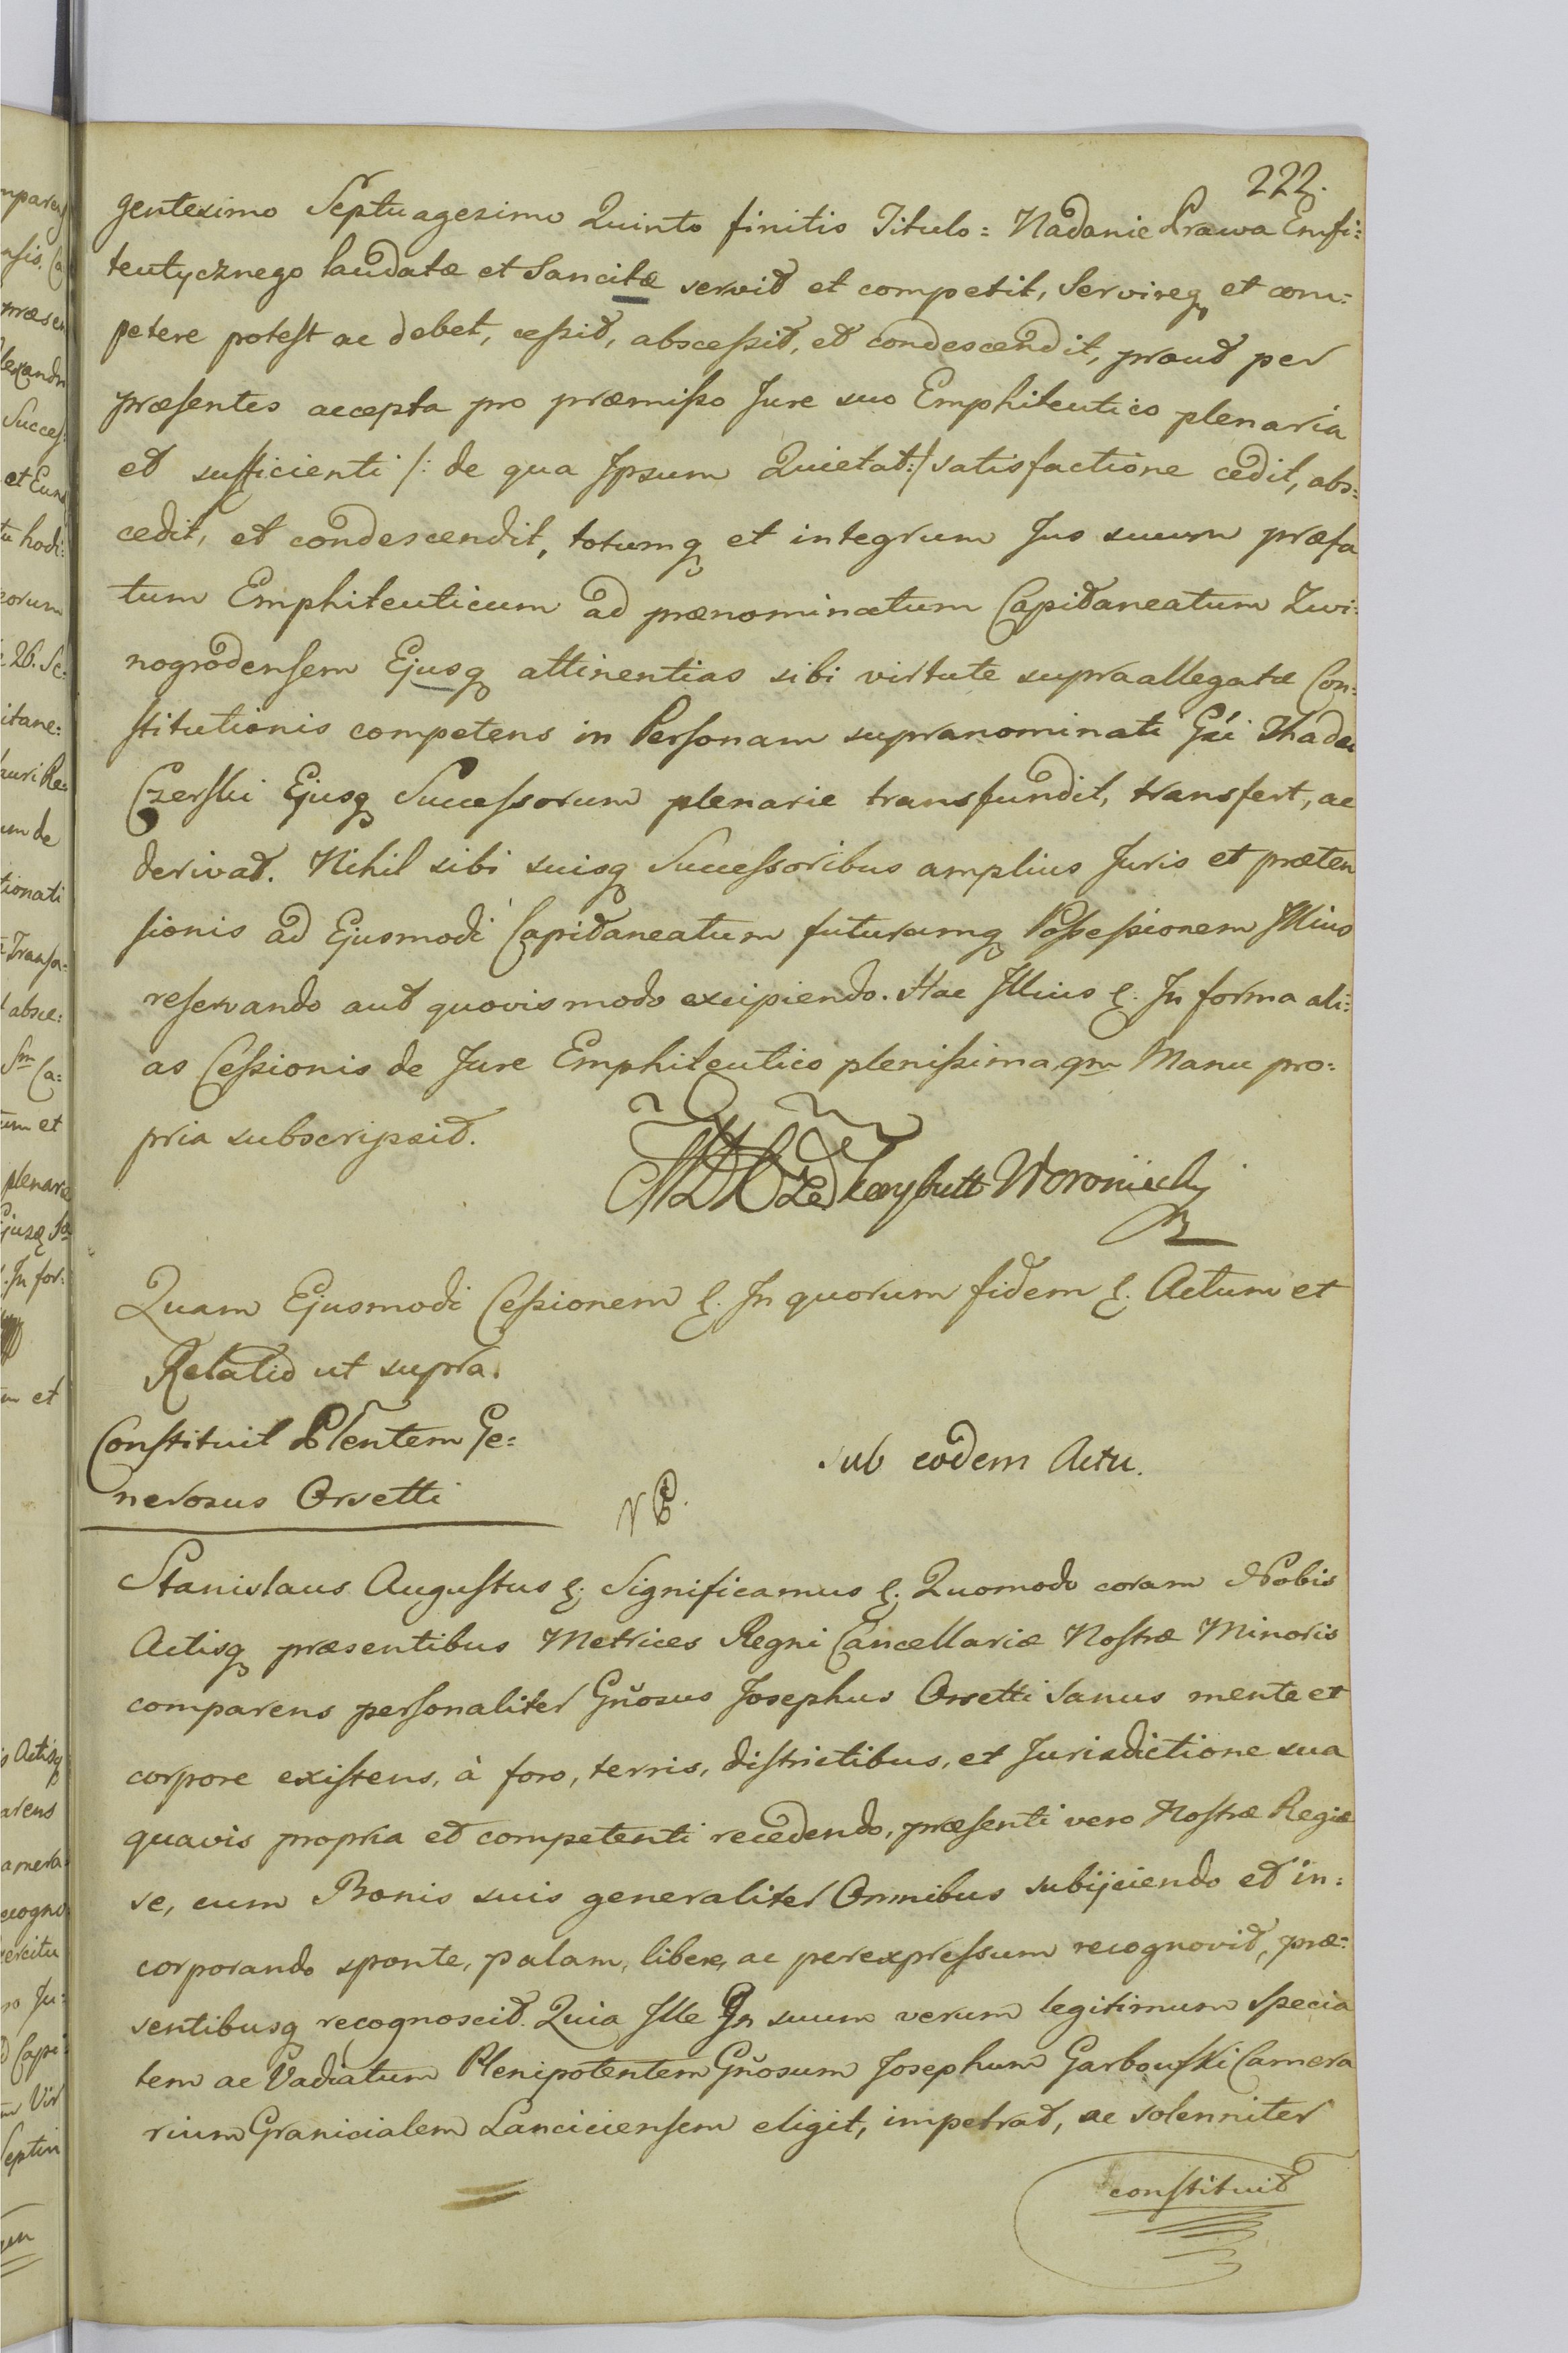 222.
gentesimo Septuagesimo Quinto finitis Titulo = Nadanie Prawa Emfi=
teutycznego laudatæ et Sancitæ servit et competit, Servireq et com=
petere potest ac debet, cessit, abscessit, et condescendit, prout per
præsentes accepta pro præmisso Jure suo Emphiteutico plenaria
et sufficienti /: de qua Ipsum Quietat :/ satisfactione cedit, abs=
cedit, et condescendit, totumq et integrum Jus suum præfa
tum Emphiteuticum ad prænominatum Capitaneatum Zwi=
nogrodensem Ejusq attinentias sibi virtute supraallegatæ Con=
stitutionis competens in Personam supranominati Gsi Thadei
Czerski Ejusq Successorum plenarie transfundit, transfert, ac
derivat. Nihil sibi suisq Successoribus amplius Juris et præten
sionis ad Ejusmodi Capitaneatum futuramq Possessionem Illius
reservando aut quovis modo excipiendo. Hac Illius &. In forma ali=
as Cessionis de Jure Emphiteutico plenissima qm Manu pro=
pria subscripsit.
Korybutt Woroniecki
Quam Ejusmodi Cessionem &. In quorum fidem &. Actum et
Relatio ut supra.
Constituit Pltentem Ge=
nerosus Orsetti
sub eodem Actu.
Stanislaus Augustus &. Significamus &. Quomodo coram Nobis
Actisq præsentibus Metrices Regni Cancellariæ Nostræ Minoris
comparens personaliter Gnosus Josephus Orsetti Sanus mente et
corpore existens, à foro, terris, districtibus, et Jurisdictione sua
quavis propria et competenti recedendo, præsenti vero Nostræ Regiæ
se, cum Bonis suis generaliter Omnibus subijciendo et in=
corporando sponte, palam, libere, ac per expressum recognovit, præ=
sentibusq recognoscit. Quia Ille In suum verum legitimum specia
lem ac Vadiatum Plenipotentem Gnosum Josephum Garbowski Camera
rium Granicialem Lanciciensem eligit, impetrat, ac solenniter
constituit